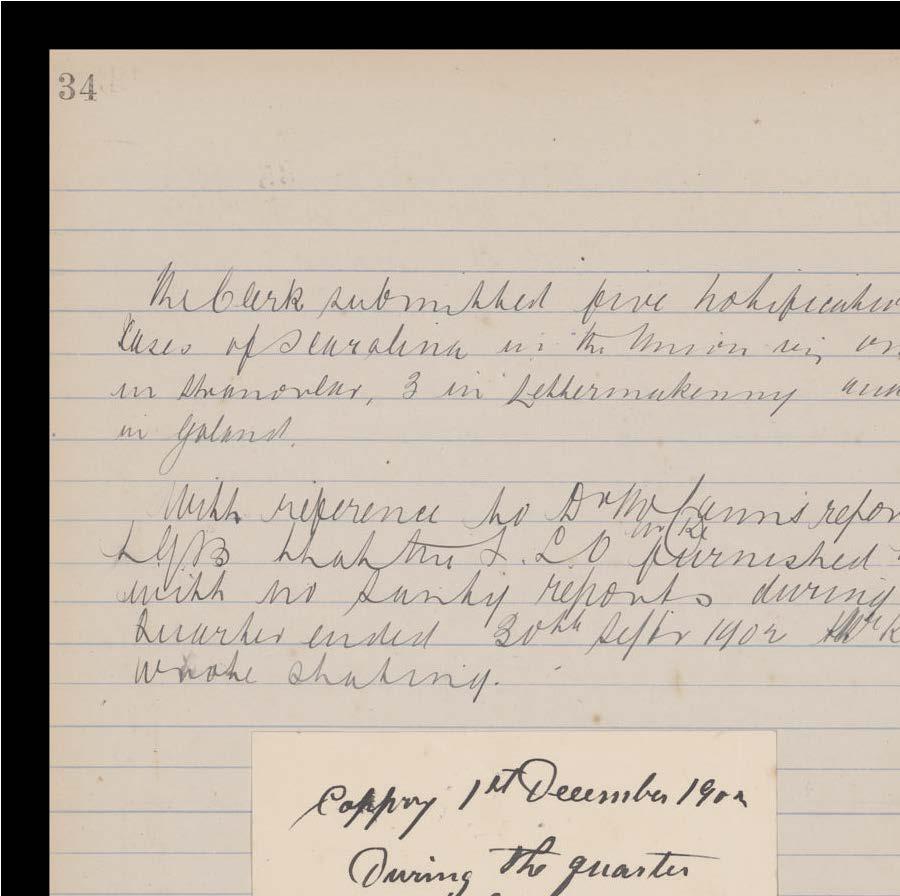 34
The Clerk submitted five notification
Cases of Scaralina in the Union viz on
in Stranorlar, 3 in Lettermakenny and
in Goland.
With reference to Dr McCann's repor
LGB that the S. L O furnished
with no Santy reports during
Quarter ended 30th Septr 1902
wrote stating.
Coppry 1st December 1902
During the quarter